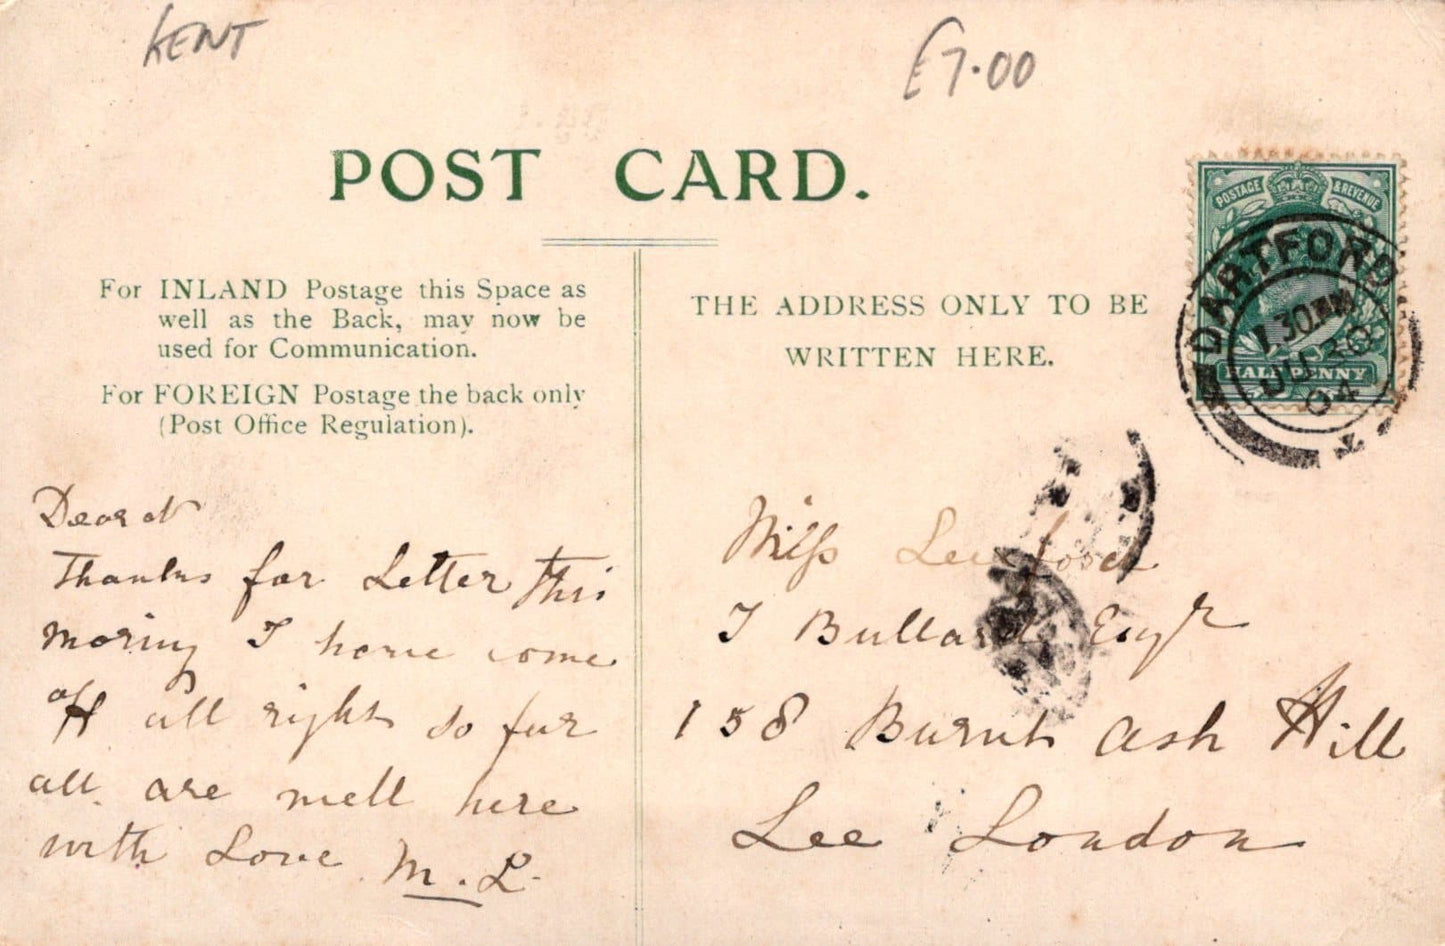 KENT
£7.00
POST CARD.
POSTAGE & REVENUE
DARTFORD
1.30PM
JU 30
04
HALFPENNY
For INLAND Postage this Space as
well as the Back, may now be
used for Communication.
For FOREIGN Postage the back only
(Post Office Regulation).
THE ADDRESS ONLY TO BE
WRITTEN HERE.
Dear
Thanks for Letter this
moring I have come
off all right so far
all are well here
with Love M. L.
Miss
J Bullard Esqr
158 Burnt Ash Hill
Lee London